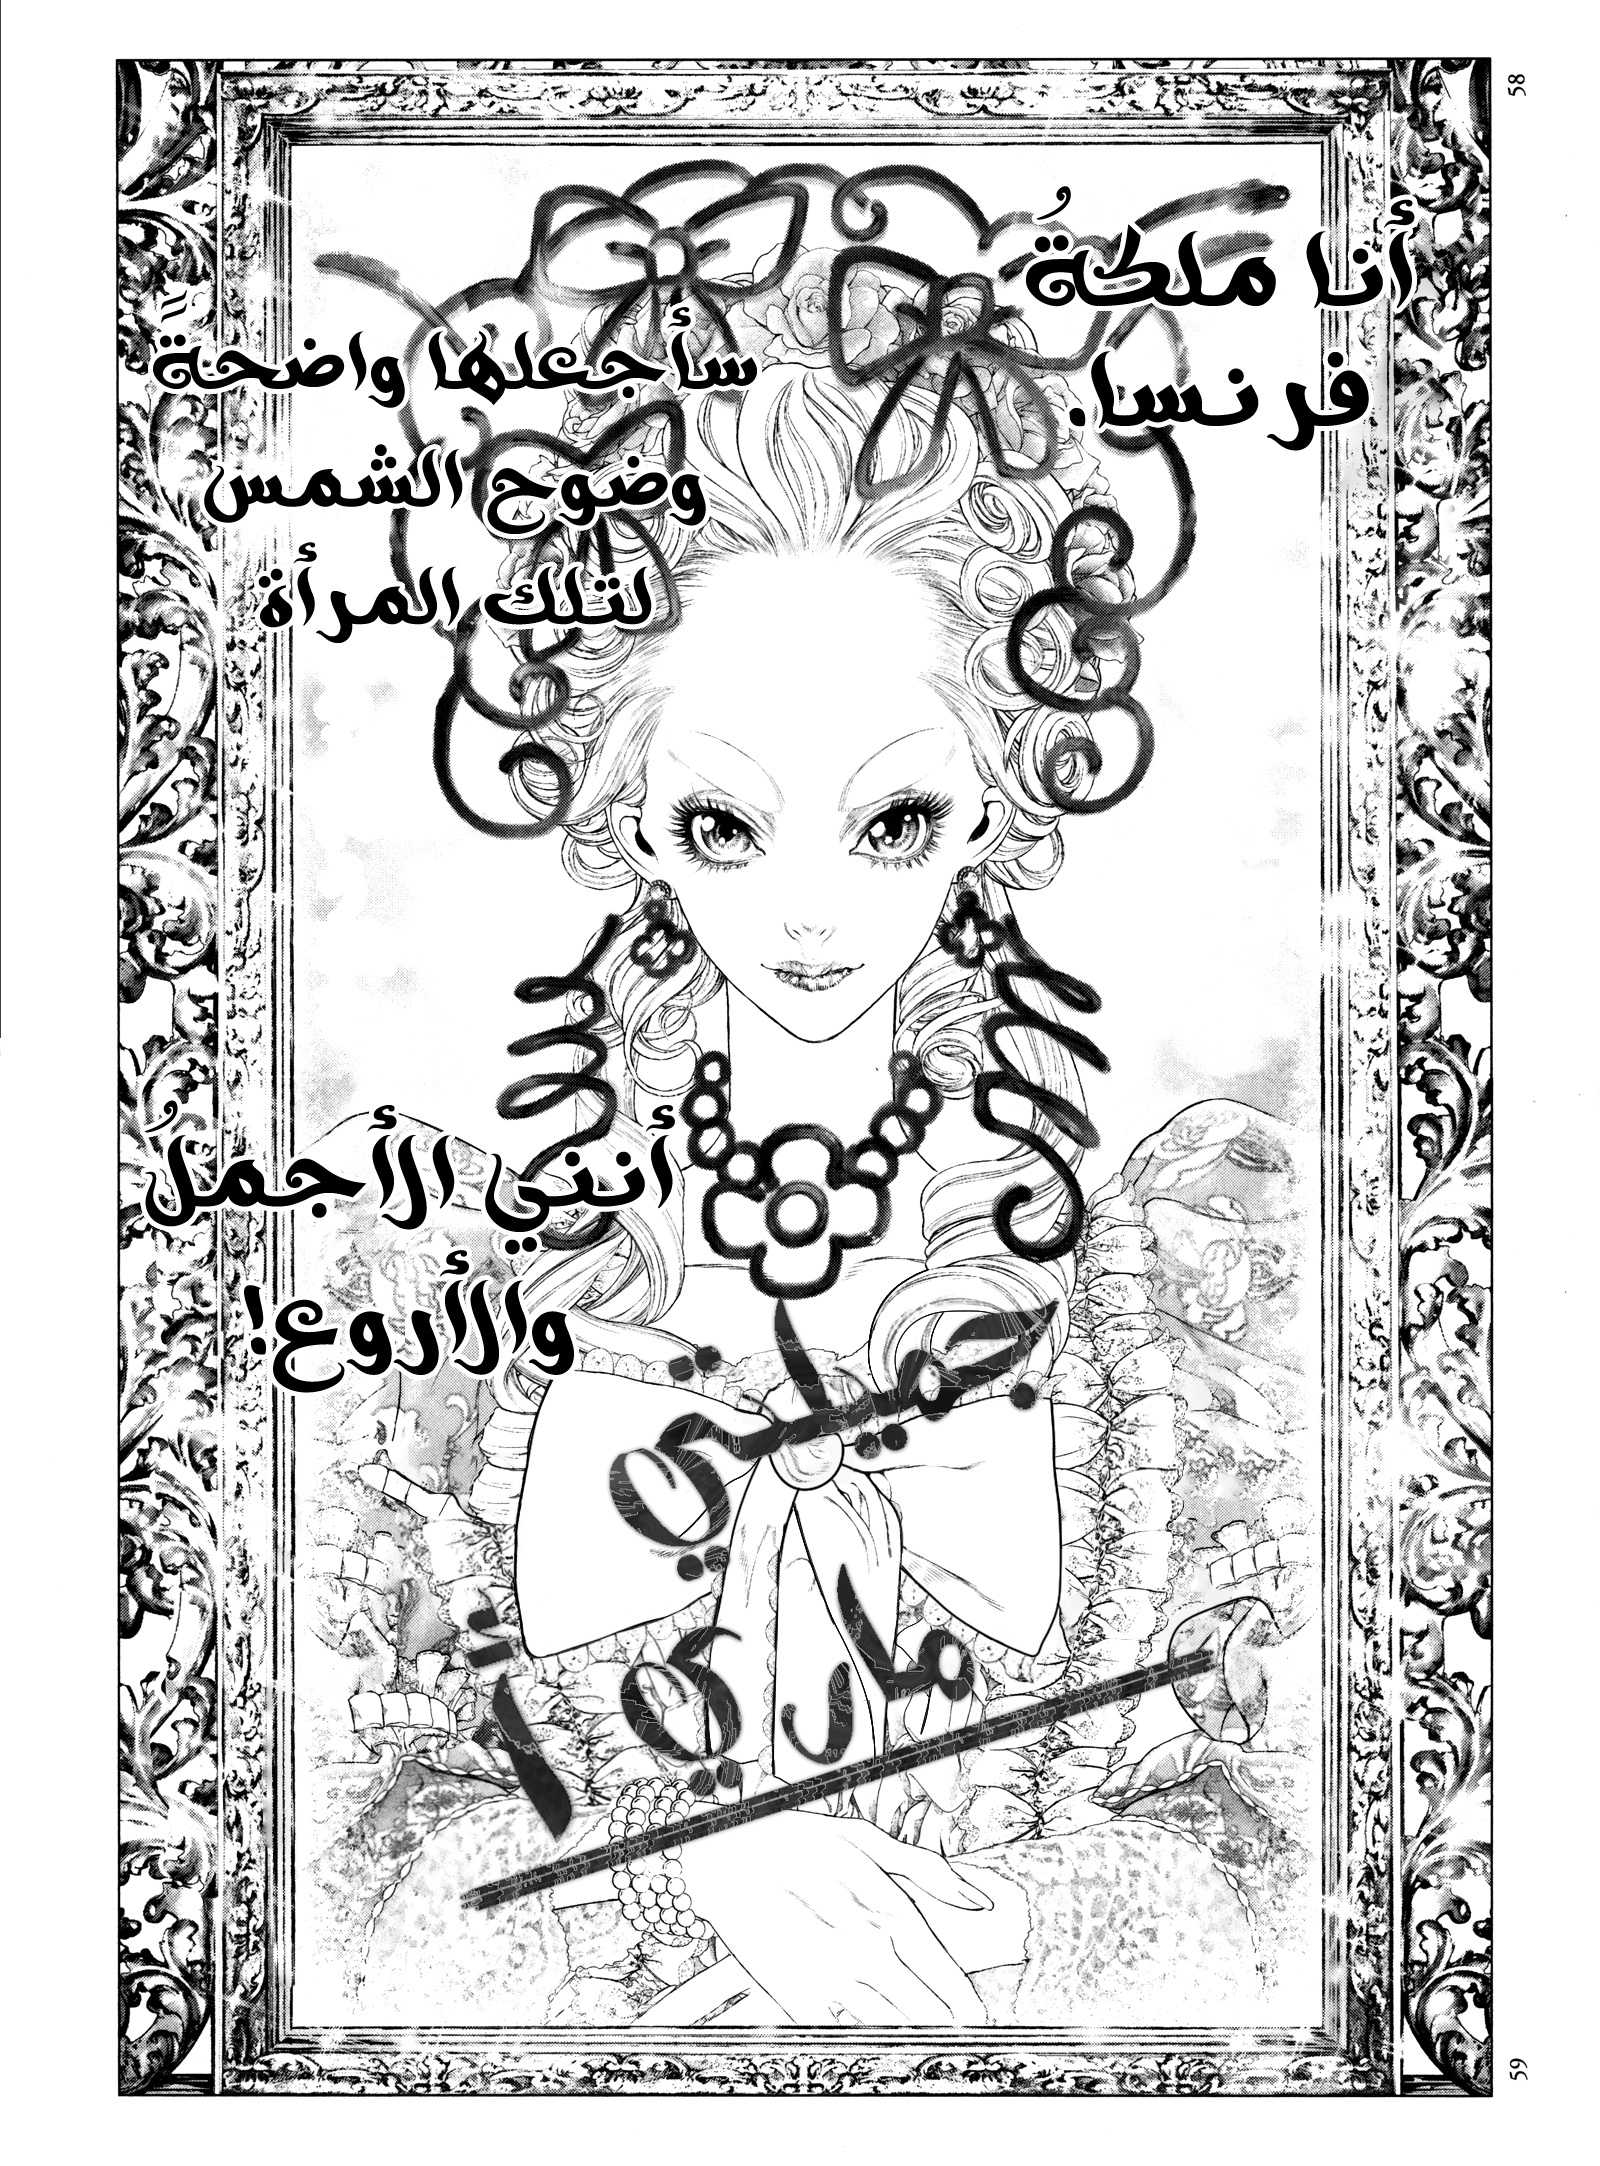 58
أنا ملكةُ
فرنسا.
سأجعلها واضحةً
وضوح الشمس
لتلك المرأة
أنني الأجملُ
والأروع!
جميلتي
ماري آ
59